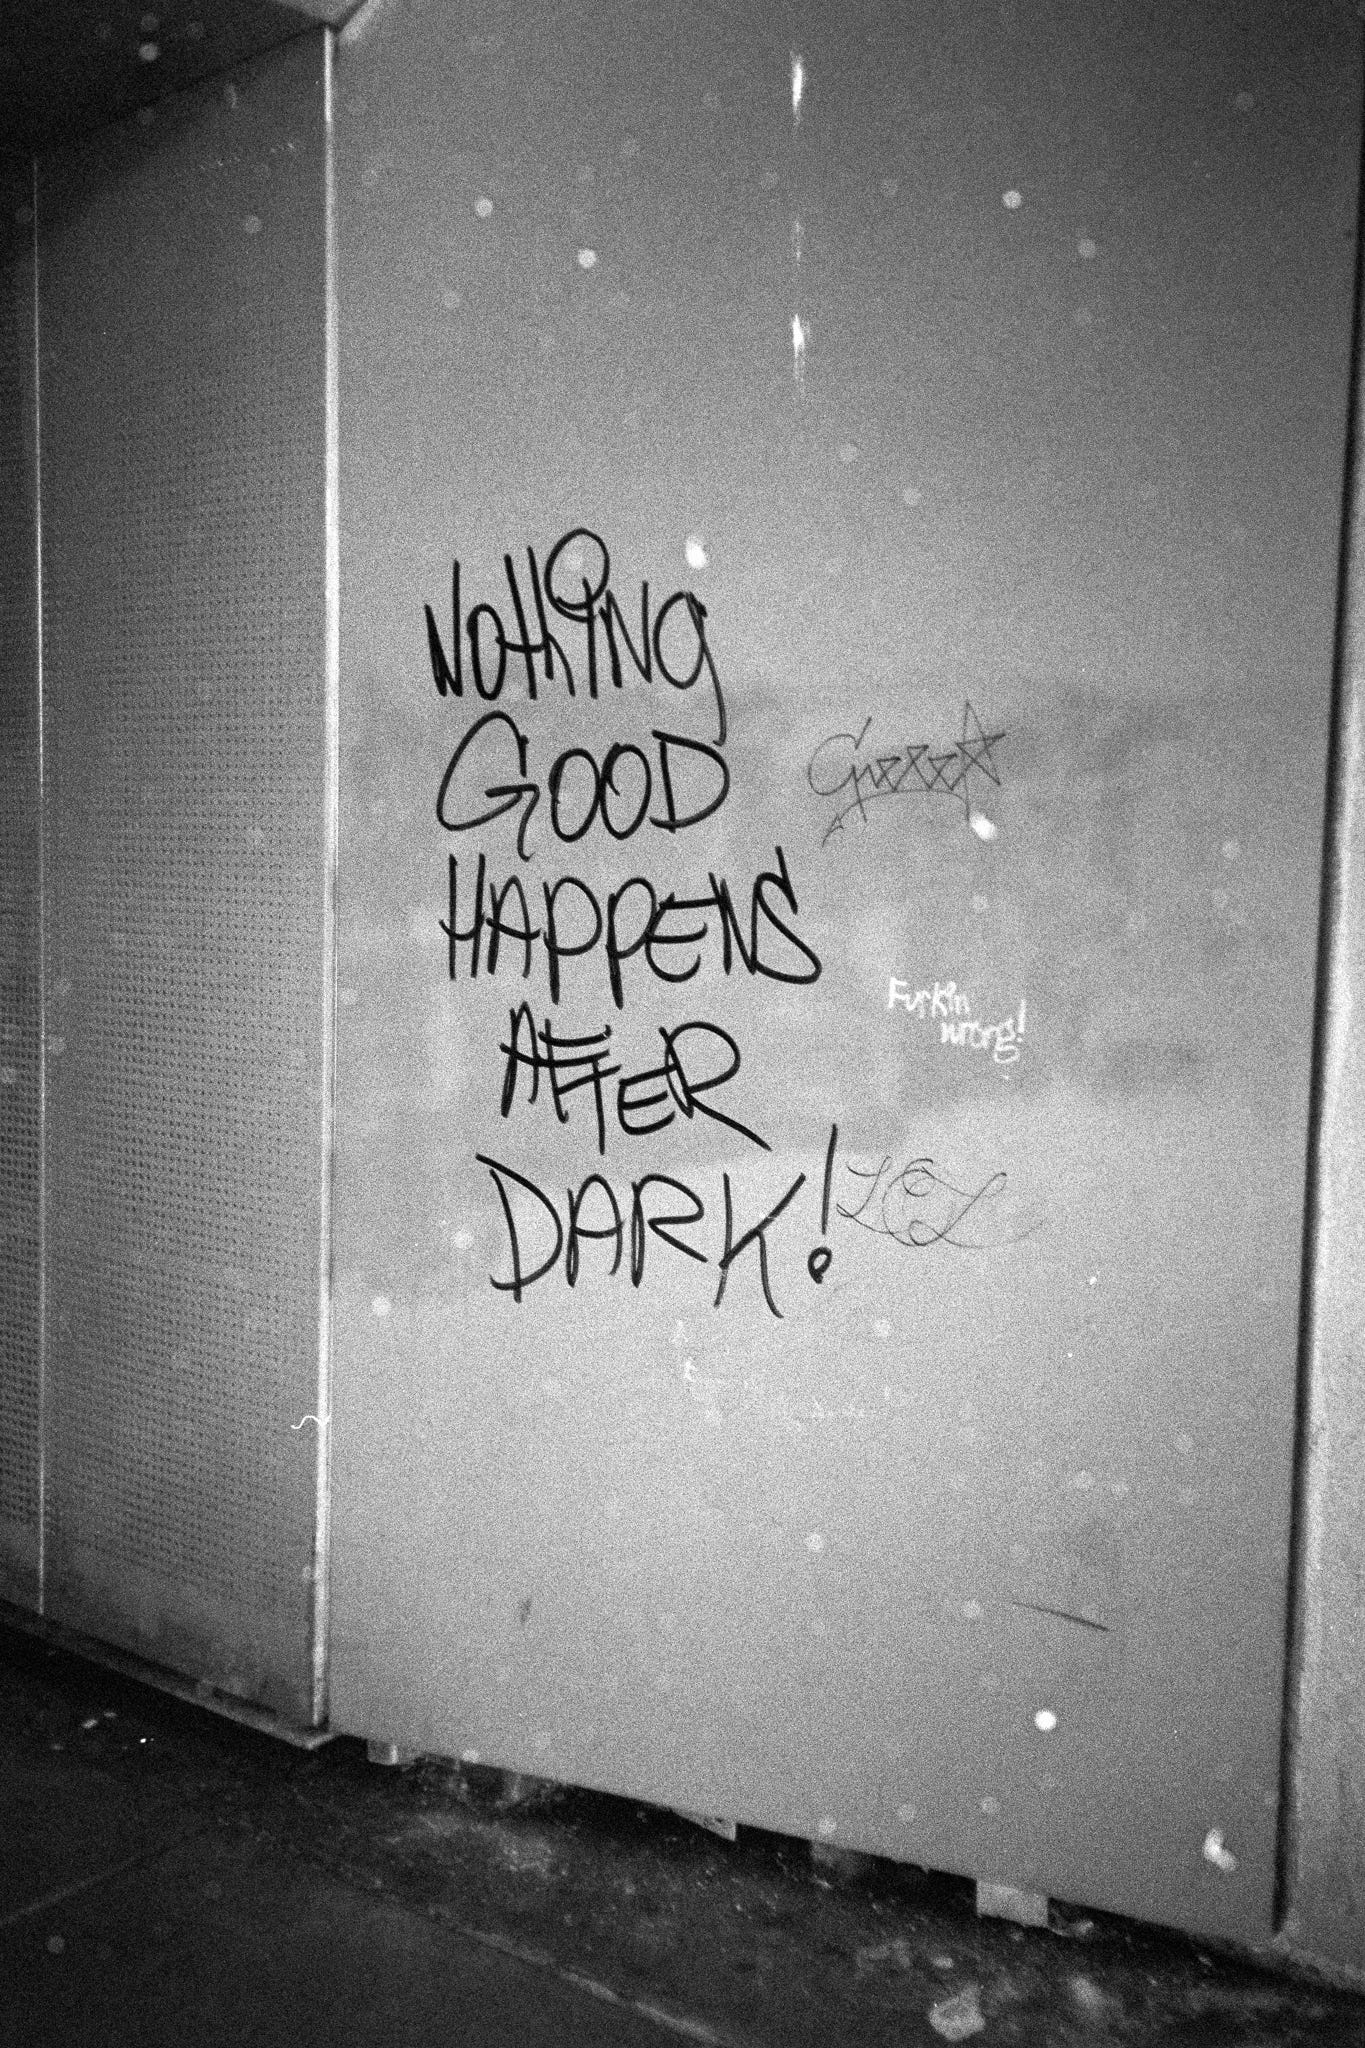 NOTHING
GOOD
HAPPENS
AFTER
DARK!
Furkin
wrong!